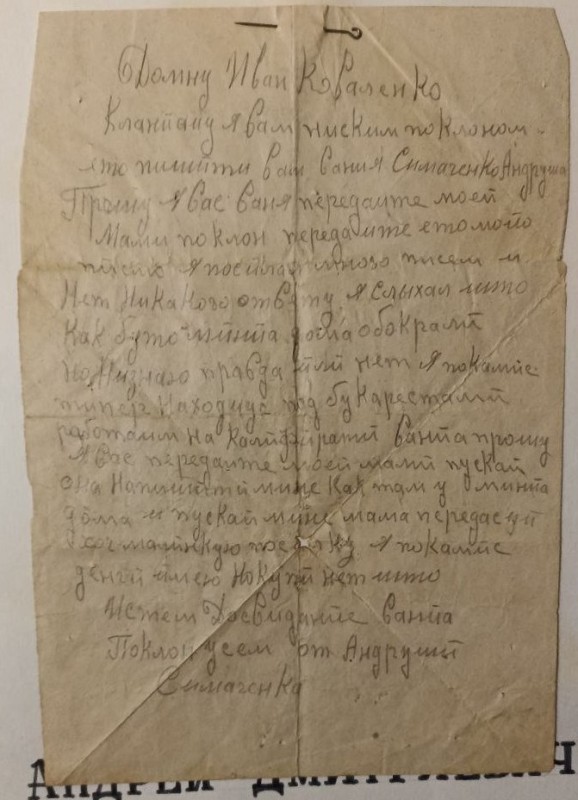 Домну Иван Коваленко
Кланпаиу я вам ниским поклоном
што пишити вам Ваня Симаченко Андруша
Прошу я вас ваня передаите моей
Мами поклон передаите етомойо
писмо я посилаю много писем и
Нет Никакого ответу я слыхал што
Как буто мииня дома обокрали
но Низнаю правда или нет я покаместь
типерь находидса под букарестам
работаим на ваня прошу
я вас передаите моей мами пускай
она напишити мине как там у миня
дома и пускай мине мама передасть
маинкую посилку я покамис
денги имею но купи нет што
Истем Досвидание ваня
Поклон усем от Андруши
Симаченка
АНДРЕЙ ДМИТРИЕВИЧ